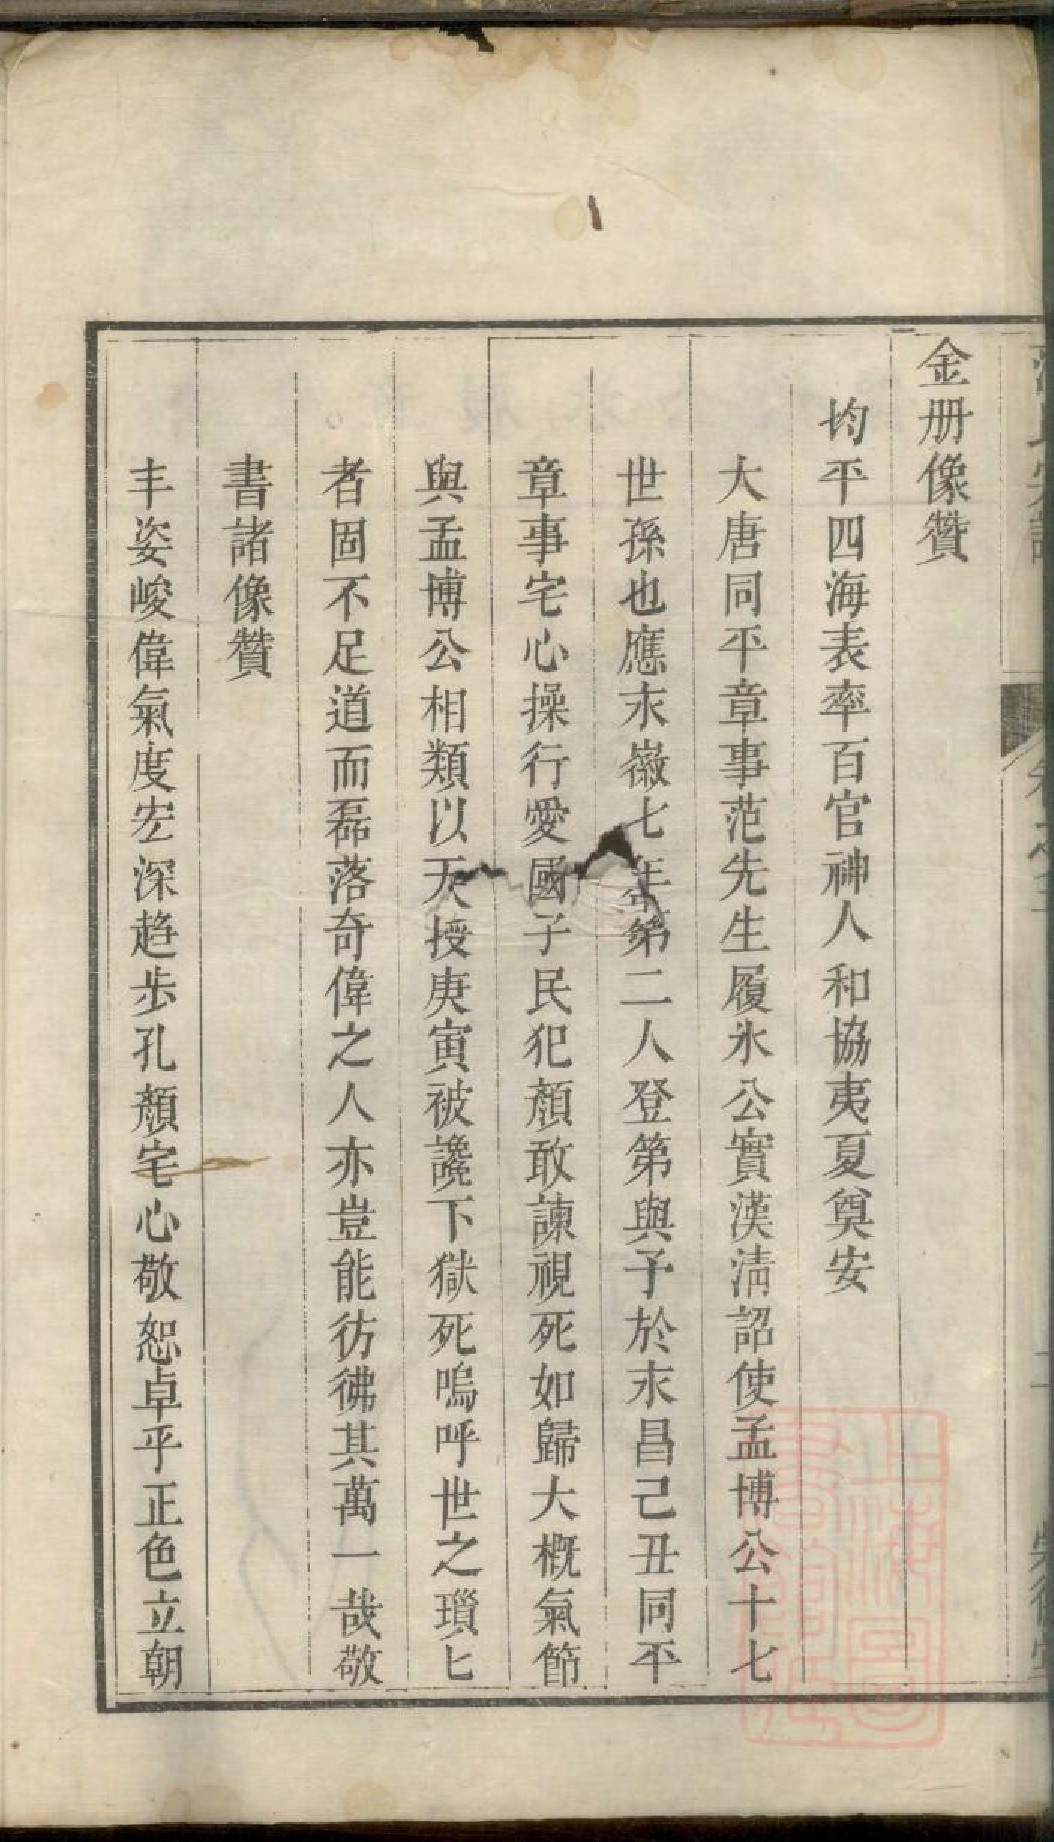 金册像贊
均平四海表率百官神人和協夷夏奠安
大唐同平章事范先生履氷公實漢清詔使孟博公十七
世孫也應永徽七年第二人登第與予於永昌己丑同平
章事宅心操行愛國子民犯顏敢諫視死如歸大槪氣節
與孟博公相類以天授庚寅被讒下獄死嗚呼世之瑣匕
者固不足道而磊落奇偉之人亦豈能彷彿其萬一哉敬
書諸像贊
丰姿峻偉氣度宏深趋步孔顏宅心敬恕卓乎正色立朝